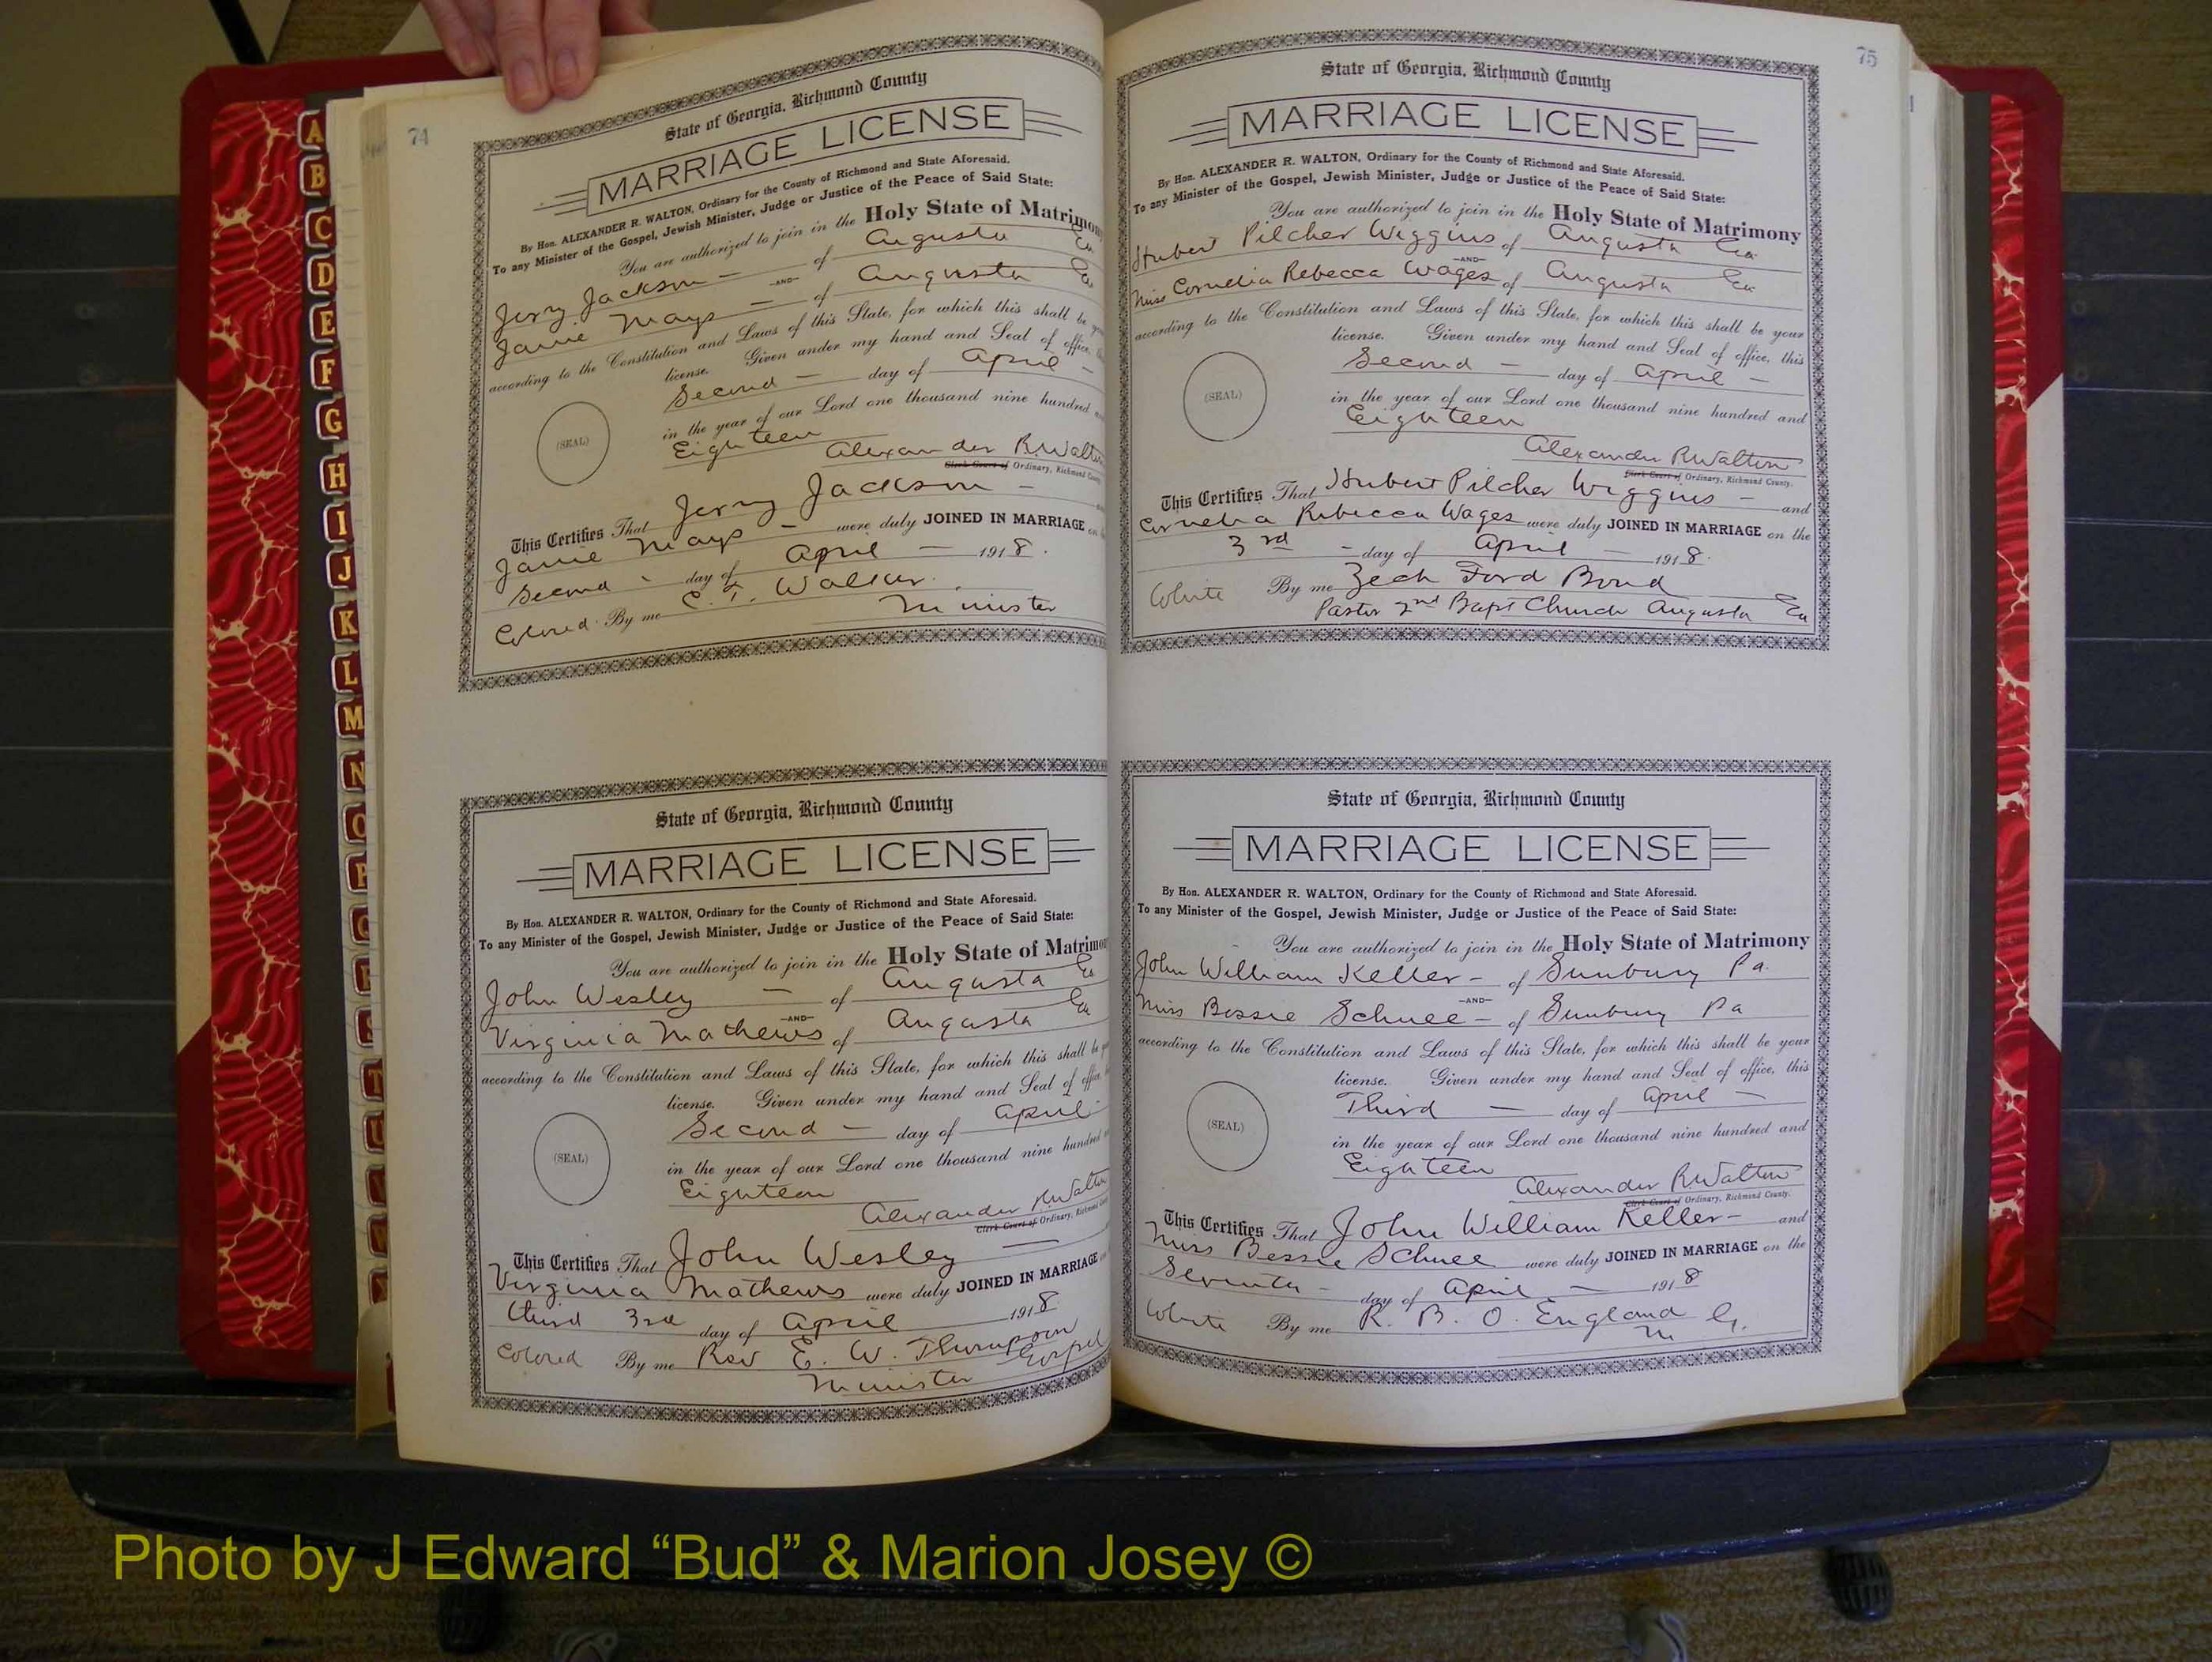 74
State of Georgia, Richmond County
MARRIAGE LICENSE
By Hon. ALEXANDER R. WALTON, Ordinary for the County of Richmond and State Aforesaid.
To any Minister of the Gospel, Jewish Minister, Judge or Justice of the Peace of Said State:
You are authorized to join in the Holy State of Matrimony
Jerry Jackson — of Augusta Ga
—AND—
Janie Mays — of Augusta Ga
according to the Constitution and Laws of this State, for which this shall be
license. Given under my hand and Seal of office,
Second — day of April —
(SEAL)
in the year of our Lord one thousand nine hundred
Eighteen
Alexander R. Walton
Clerk Court of Ordinary, Richmond County.
This Certifies That Jerry Jackson —
Janie Mays — were duly JOINED IN MARRIAGE on
Second - day of April — 1918.
Colored By me C. T. Walker.
Minister
State of Georgia, Richmond County
MARRIAGE LICENSE
By Hon. ALEXANDER R. WALTON, Ordinary for the County of Richmond and State Aforesaid.
To any Minister of the Gospel, Jewish Minister, Judge or Justice of the Peace of Said State:
You are authorized to join in the Holy State of Matrimo
John Wesley — of Augusta Ga
—AND—
Virginia Mathews of Augusta Ga
according to the Constitution and Laws of this State, for which this shall be
license. Given under my hand and Seal of office,
Second — day of April
(SEAL)
in the year of our Lord one thousand nine hundred
Eighteen
Alexander R Walton
Clerk Court of Ordinary, Richmond
This Certifies That John Wesley —
Virginia Mathews were duly JOINED IN MARRIAGE
third 3rd day of April 1918.
Colored By me Rev E. W. Thompson
Gospel
Minister
75
State of Georgia, Richmond County
MARRIAGE LICENSE
By Hon. ALEXANDER R. WALTON, Ordinary for the County of Richmond and State Aforesaid.
To any Minister of the Gospel, Jewish Minister, Judge or Justice of the Peace of Said State:
You are authorized to join in the Holy State of Matrimony
Hubert Pilcher Wiggins of Augusta Ga
—AND—
Miss Cornelia Rebecca Wages of Augusta Ga
according to the Constitution and Laws of this State, for which this shall be your
license. Given under my hand and Seal of office, this
Second — day of April —
(SEAL)
in the year of our Lord one thousand nine hundred and
Eighteen
Alexander R Walton
Clerk Court of Ordinary, Richmond County.
This Certifies That Hubert Pilcher Wiggins — and
Cornelia Rebecca Wages were duly JOINED IN MARRIAGE on the
3rd - day of April — 1918.
White By me Zech Ford Bond
Pastor 2nd Bapt Church Augusta Ga
State of Georgia, Richmond County
MARRIAGE LICENSE
By Hon. ALEXANDER R. WALTON, Ordinary for the County of Richmond and State Aforesaid.
To any Minister of the Gospel, Jewish Minister, Judge or Justice of the Peace of Said State:
You are authorized to join in the Holy State of Matrimony
John William Keller — of Sunbury Pa.
—AND—
Miss Bessie Schnee — of Sunbury Pa
according to the Constitution and Laws of this State, for which this shall be your
license. Given under my hand and Seal of office, this
Third — day of April —
(SEAL)
in the year of our Lord one thousand nine hundred and
Eighteen
Alexander R Walton
Clerk Court of Ordinary, Richmond County.
This Certifies That John William Keller — and
Miss Bessie Schnee were duly JOINED IN MARRIAGE on the
Seventh - day of April — 1918
White By me R. B. O. England
M. G.
A
B
C
D
E
F
G
H
I
J
K
L
M
N
O
P
Q
R
S
T
U
V
W
Photo by J Edward “Bud” & Marion Josey ©